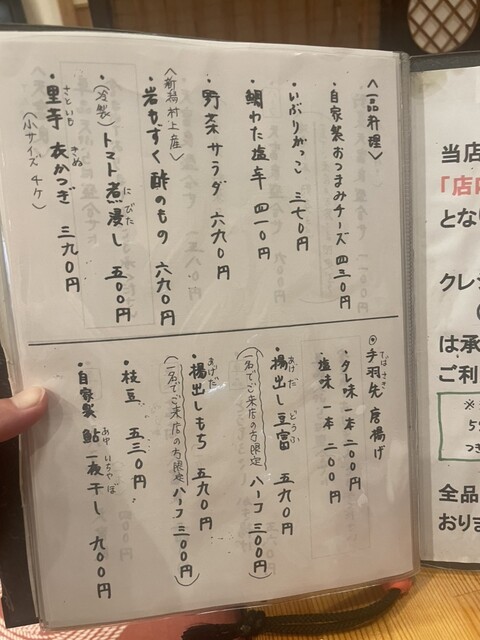 〈一品料理〉
・自家製おつまみチーズ 四三〇円
・いぶりがっこ 三七〇円
・鯛わた塩辛 四一〇円
・野菜サラダ 六九〇円
〈新潟村上産〉
・岩もずく酢のもの 六九〇円
・(冷製)トマト煮浸し 五〇〇円
にびた
・里芋 衣かつぎ 三九〇円
さといも きぬ
(小サイズ4ケ)
◎手羽先唐揚げ
てばさき
・タレ味 一本 二〇〇円
・塩味 一本 二〇〇円
・揚出し豆富 五九〇円
あげだ とうふ
(一名でご来店の方限定 ハーフ 三〇〇円)
・揚出しもち 五九〇円
あげだ
(一名でご来店の方限定 ハーフ 三〇〇円)
・枝豆 五三〇円
・自家製 鮎一夜干し 九〇〇円
あゆ いちやぼ
当店
「店内
とな
クレ
は承
ご利
全品
おりま